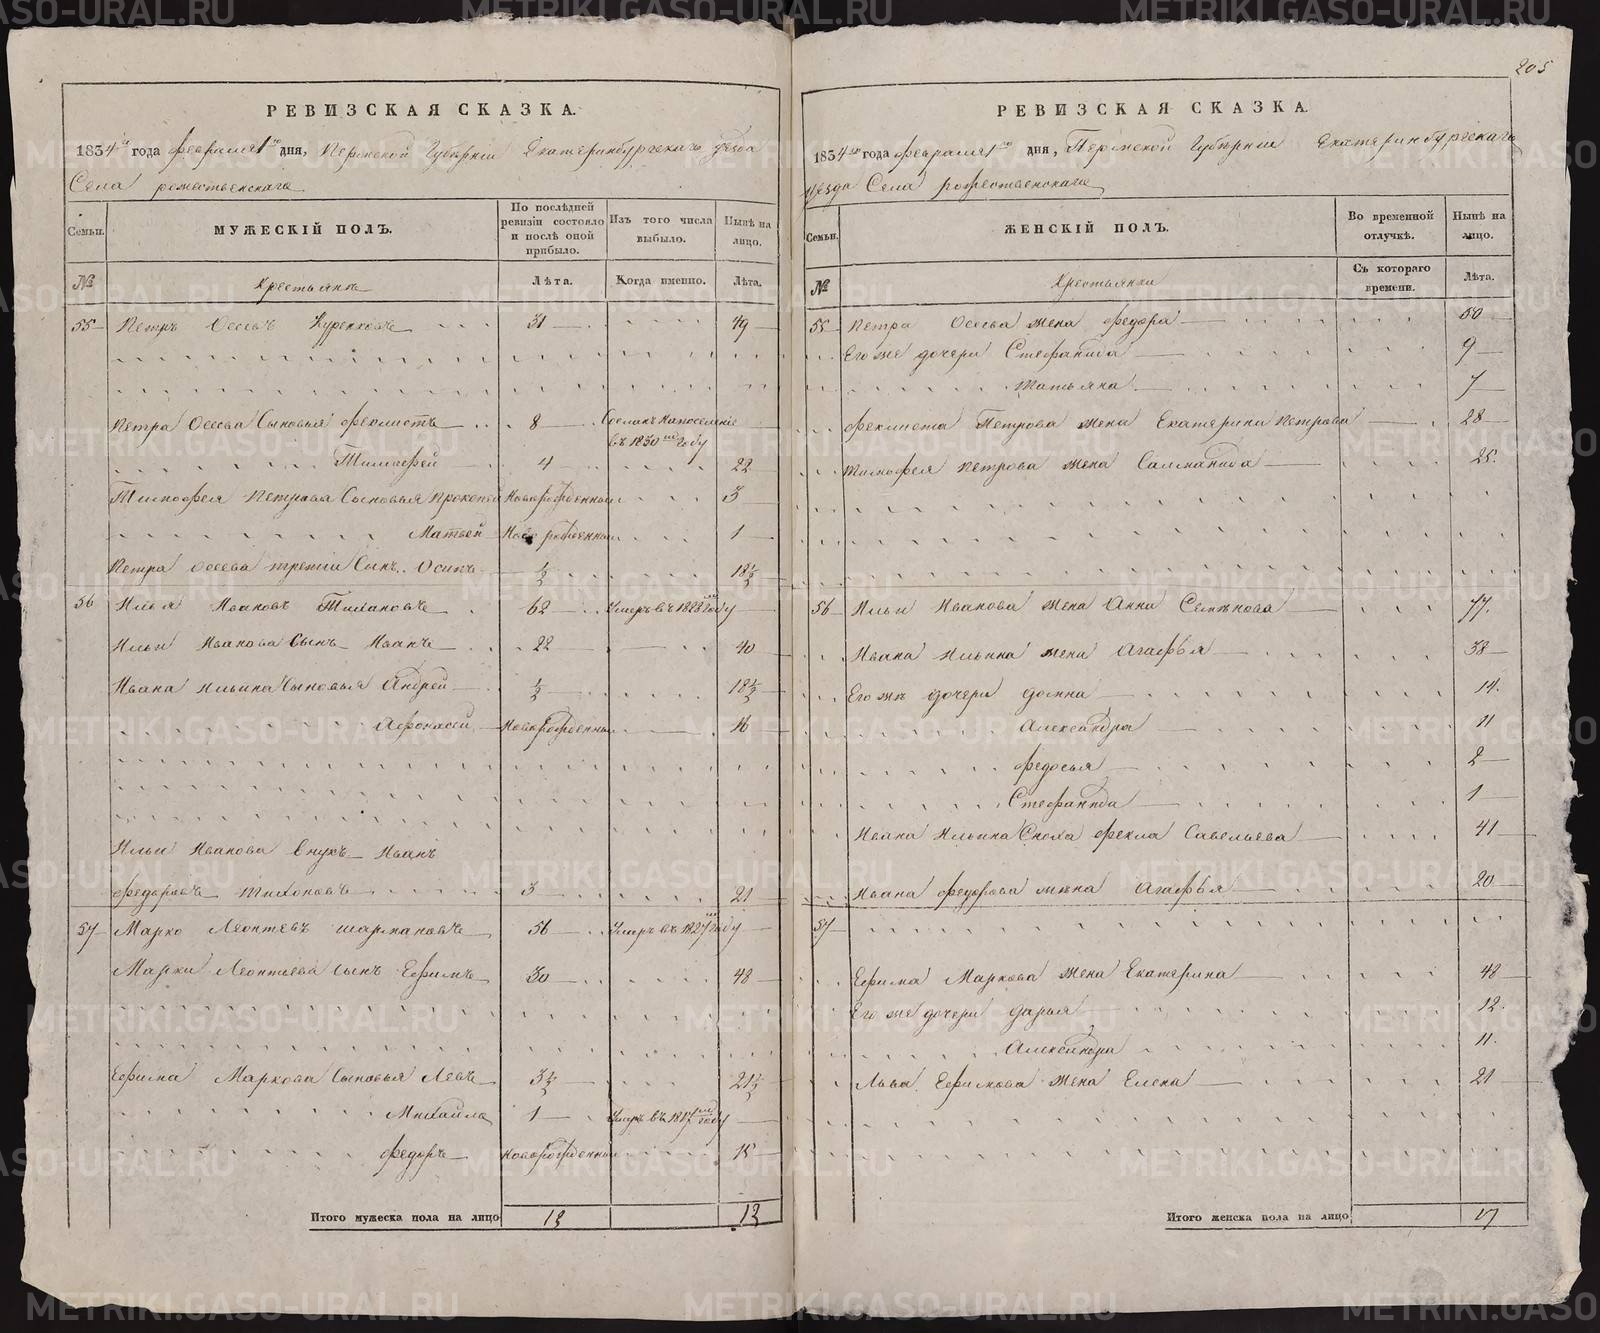 205
РЕВИЗСКАЯ СКАЗКА.
1834 года февраля 1 дня, Пермской Губернiи Екатеринбургскаго уезда
Села рожественскаго
Семьи.
МУЖЕСКIЙ ПОЛЪ.
По послѣдней ревизiи состояло и послѣ оной прибыло.
Изъ того числа выбыло.
Нынѣ на лицо.
№
Крестьянъ
Лѣта.
Когда именно.
Лѣта.
55 Петръ Осевъ 31 49
Петра Осева Сыновья феклистъ 8 Сосланъ на поселенiе въ 1830 году
Тимофей 4 22
Тимофея Петрова Сыновья Прокопей Новорожденной 3
Матвей Новорожденной 1
Петра Осева третiй Сынъ Осипъ ½ 18½
56 Илья Ивановъ Тихановъ 62 Умеръ въ 1828 году
Ильи Иванова Сынъ Иванъ 22 40
Ивана Ильина Сыновья Андрей ½ 18½
Афонасей Новорожденной 16
Ильи Иванова Внукъ Иванъ
федоровъ Тихоновъ 3 21
57 Марко Леонтевъ шармановъ 56 Умеръ въ 1827 году
Марки Леонтиева сынъ Ефимъ 30 48
Ефима Маркова Сыновья Левъ 3½ 21½
Михайла 1 Умеръ въ 1817 году
федоръ Новорожденной 15
Итого мужеска пола на лицо 13 13
РЕВИЗСКАЯ СКАЗКА.
1834 года февраля 1 дня, Пермской Губернiи Екатеринбургскаго
уезда Села рожественскаго
Семьи.
ЖЕНСКIЙ ПОЛЪ.
Во временной отлучкѣ.
Нынѣ на лицо.
№
Крестьянки
Съ котораго времени.
Лѣта.
55 Петра Осева жена федора 50
Его же дочери Стефанида 9
Татьяна 7
феклиста Петрова жена Екатерина Петрова 28
Тимофея Петрова жена Саломанида 25
56 Ильи Иванова жена Анна Семѣнова 77
Ивана Ильина жена Агафья 38
Его жъ дочери домна 14
Александра 11
федосья 2
Стефанида 1
Ивана Ильина Сноха фекла Савельева 41
Ивана федорова жена Агафья 20
57
Ефима Маркова жена Екатерина 48
Его же дочери дарья 12
Александра 11
Льва Ефимова жена Елена 21
Итого женска пола на лицо 17
METRIKI.GASO-URAL.RU